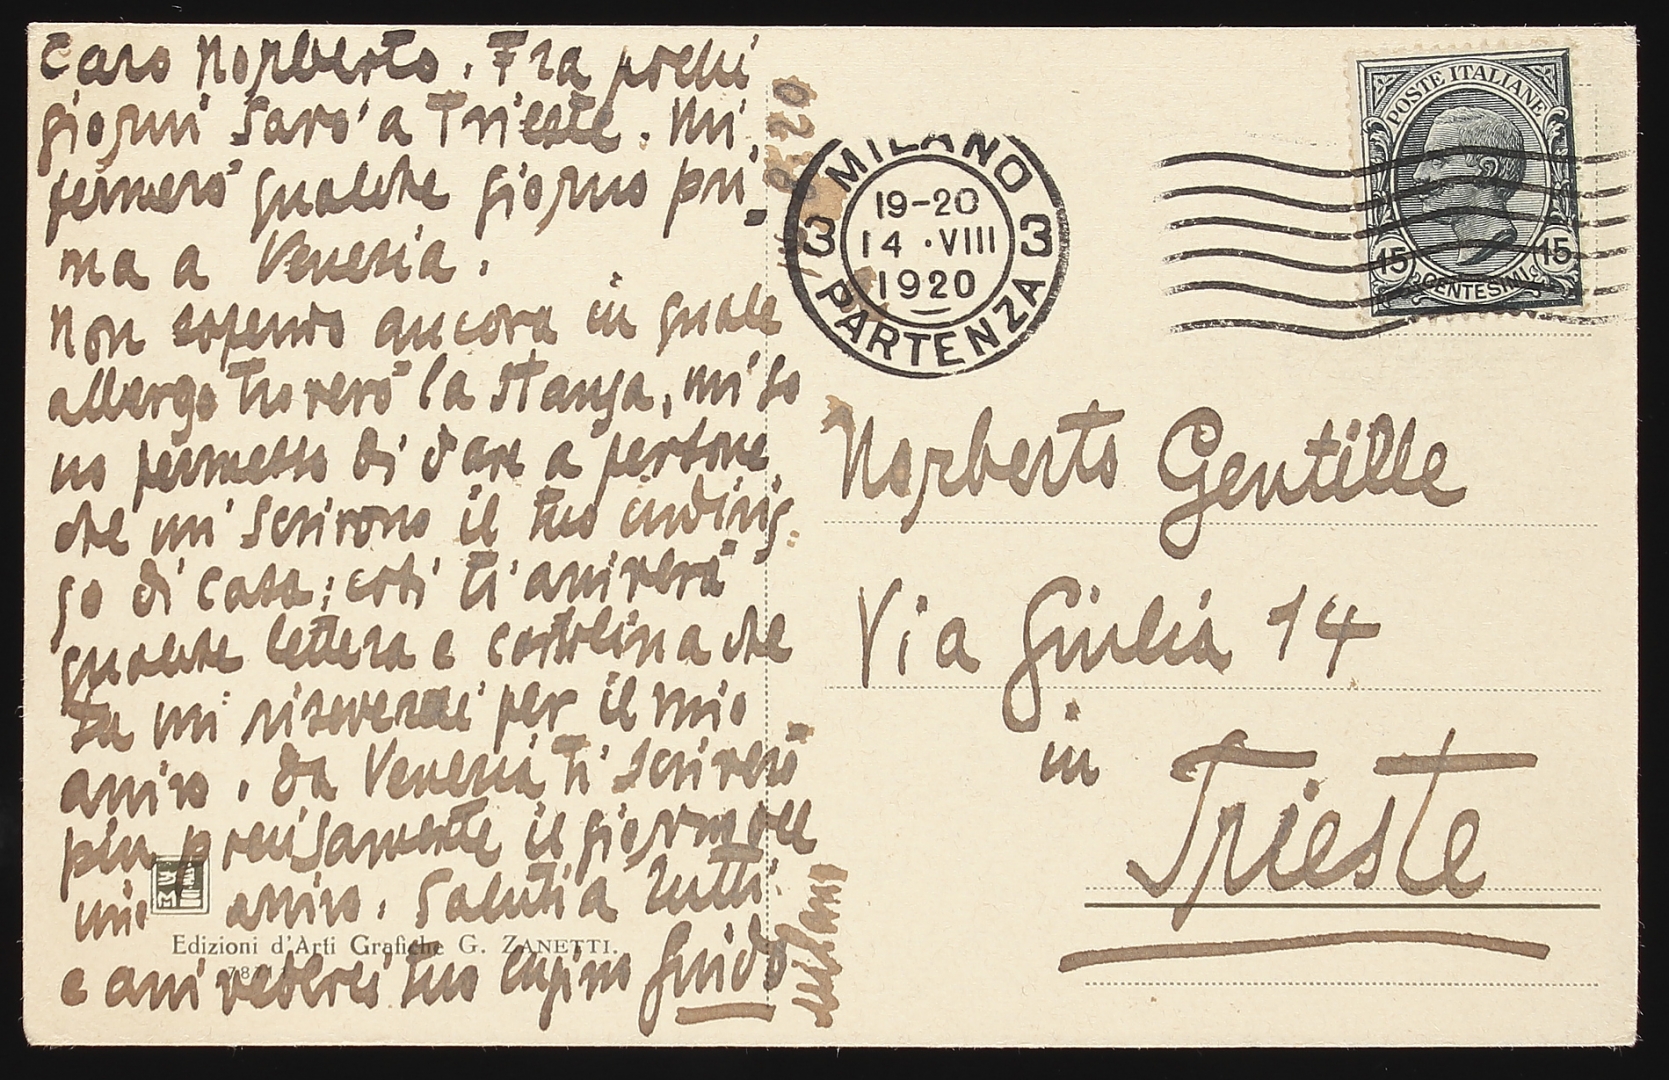 Caro Norberto. Fra pochi
giorni sarò a Trieste. Mi
fermerò qualche giorno pri-
ma a Venezia.
Non sapendo ancora in quale
albergo troverò la stanza, mi so-
no permesso di dare a persone
che mi scrivono il tuo indiriz-
zo di casa; così ti arriverà
qualche lettera e cartolina che
tu mi riceverai per il mio
arrivo. Da Venezia ti scriverò
più precisamente il giorno del
mio arrivo. Saluti a tutti
e arrivederci tuo cugino Guido
Milano
1920
MILANO
19-20
14 · VIII
1920
3 3
PARTENZA
POSTE ITALIANE
15 15
CENTESIMI
Norberto Gentille
Via Giulia 14
in
Trieste
Edizioni d'Arti Grafiche G. ZANETTI.